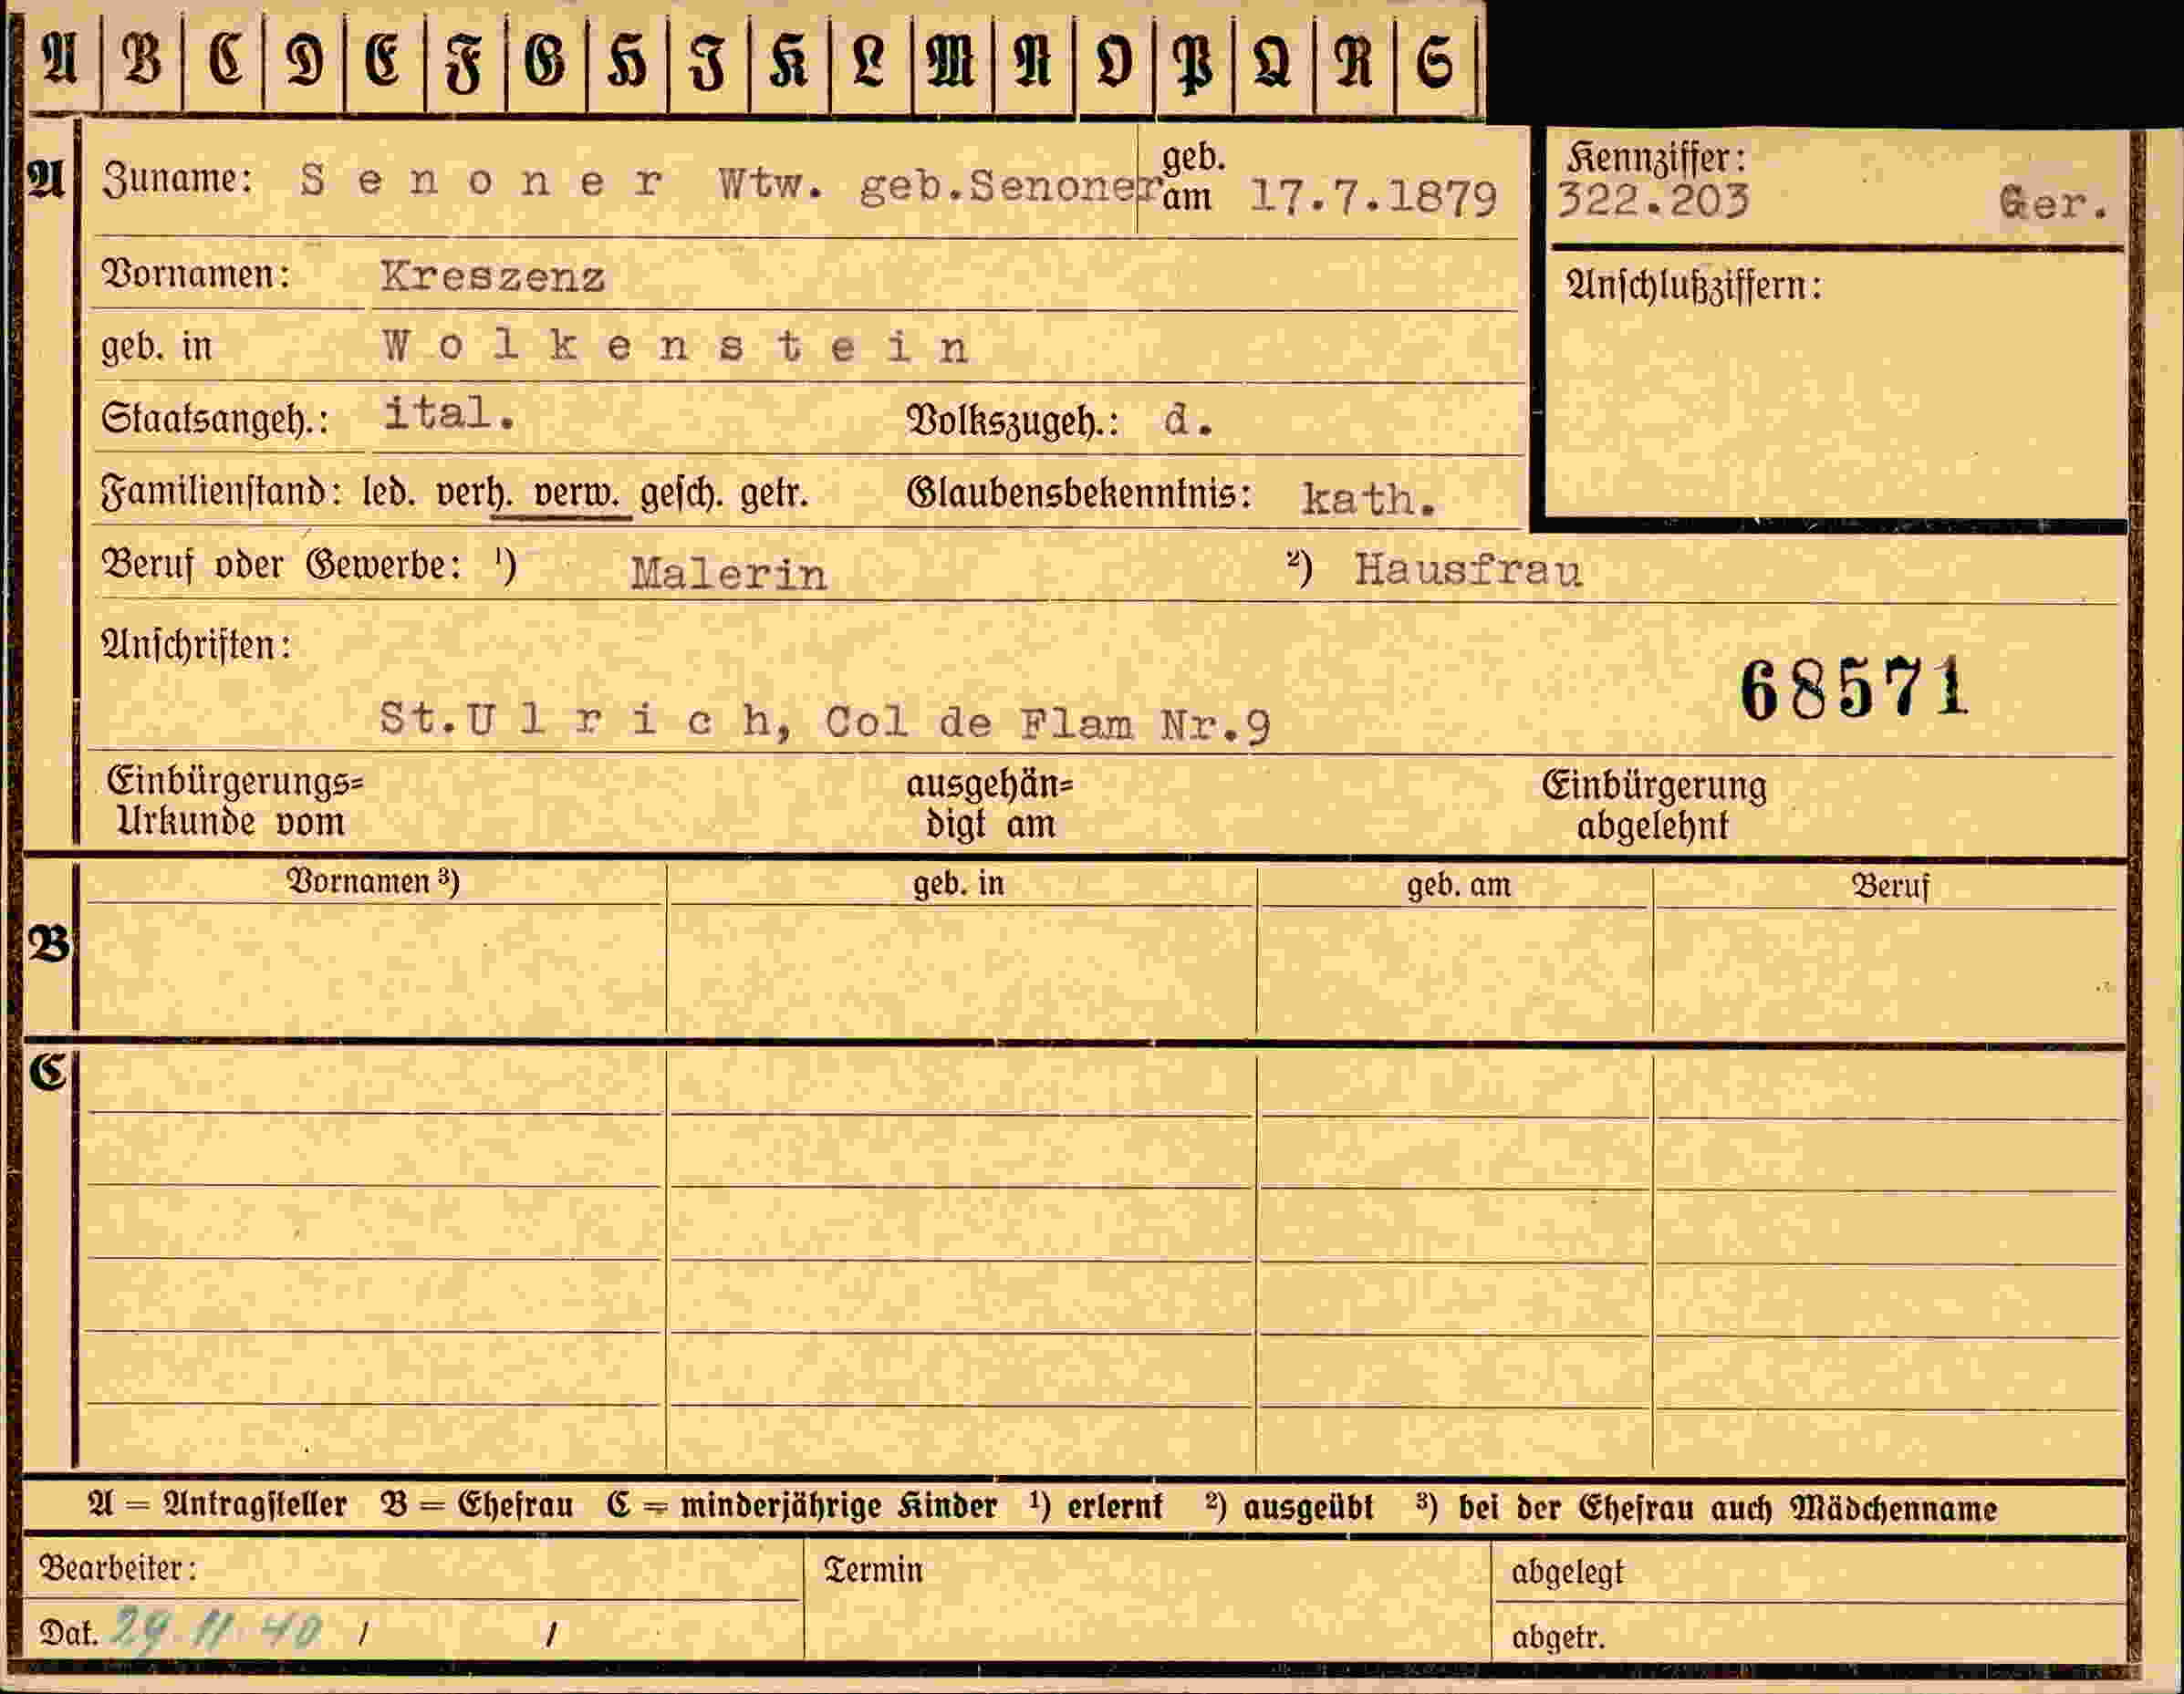 A B C D E F G H I K L M N O P Q R S
A Zuname: Senoner Wtw. geb.Senoner geb. am 17.7.1879
Kennziffer:
322.203 Ger.
Vornamen: Kreszenz
Anschlußziffern:
geb. in Wolkenstein
Staatsangeh.: ital. Volkszugeh.: d.
Familienstand: led. verh. verw. gesch. getr. Glaubensbekenntnis: kath.
Beruf oder Gewerbe: ¹) Malerin ²) Hausfrau
Anschriften:
68571
St.Ulrich, Col de Flam Nr.9
Einbürgerungs= ausgehän= Einbürgerung
Urkunde vom digt am abgelehnt
Vornamen ³) geb. in geb. am Beruf
B
C
A = Antragsteller B = Ehefrau C = minderjährige Kinder ¹) erlernt ²) ausgeübt ³) bei der Ehefrau auch Mädchenname
Bearbeiter: Termin abgelegt
Dat. 29.11.40 / / abgetr.